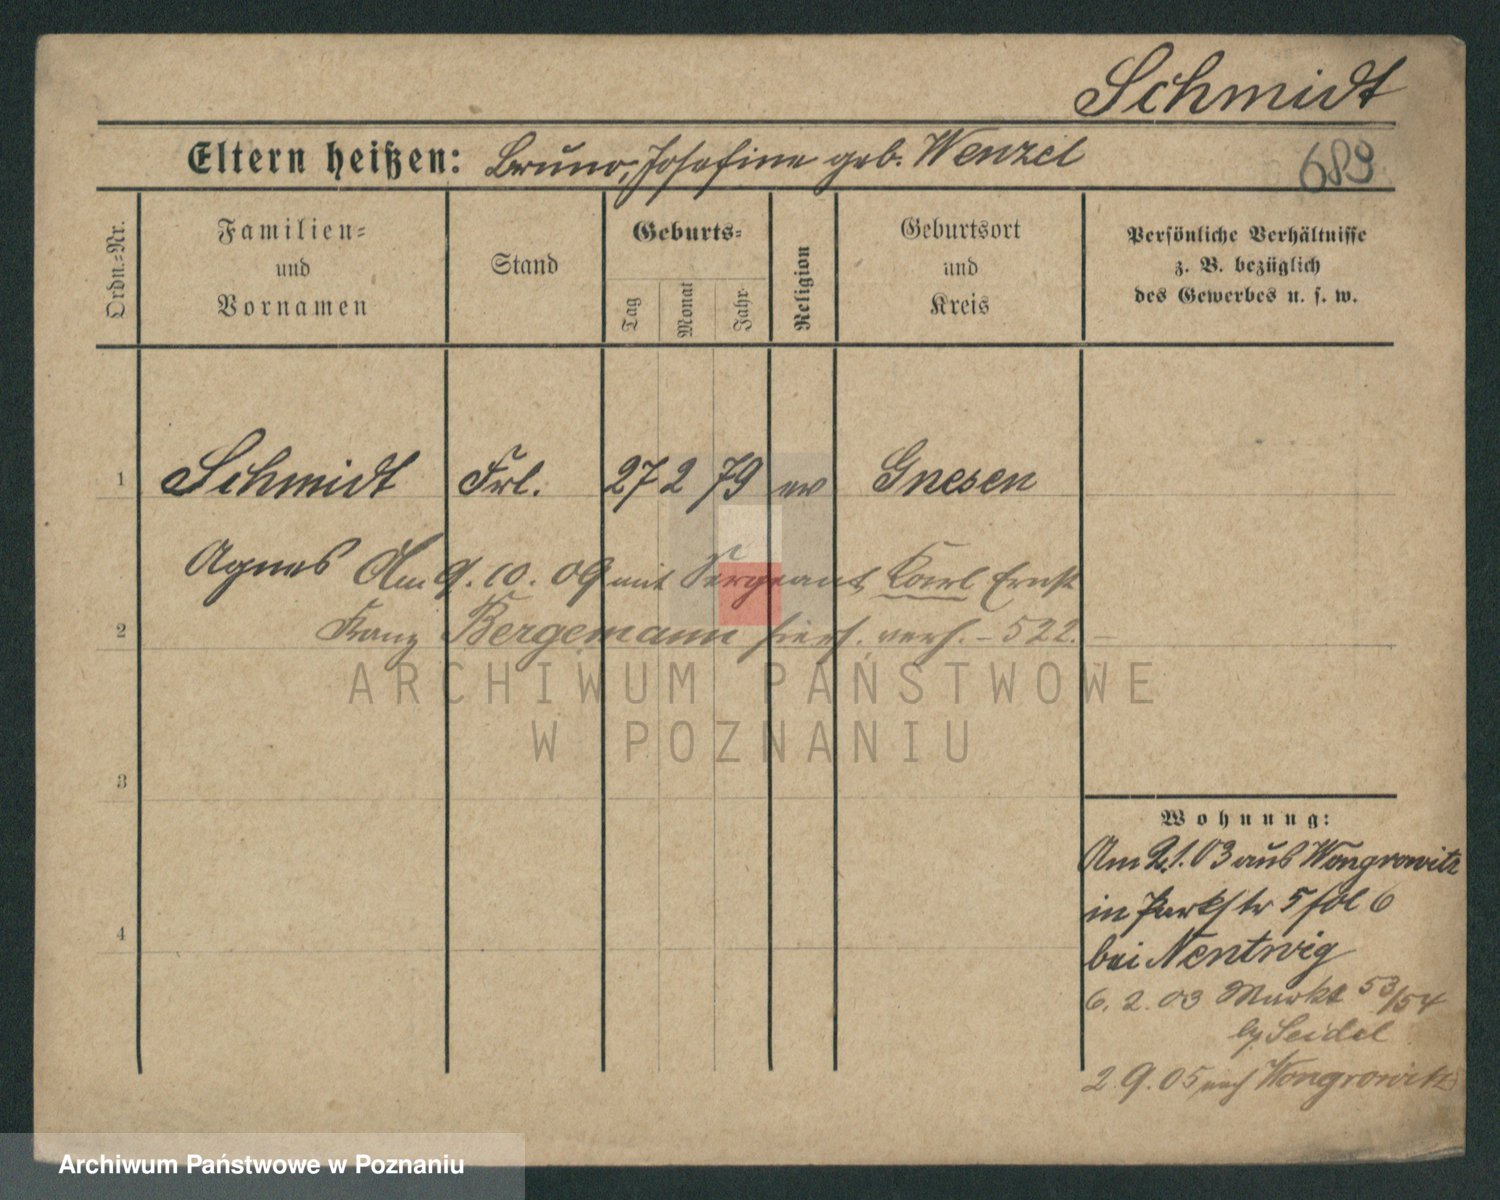 Schmidt
Eltern heißen: Bruno, Josefine geb. Wenzel
689
Ordn.-Nr.
Familien-
und
Vornamen
Stand
Geburts-
Tag
Monat
Jahr
Religion
Geburtsort
und
Kreis
Persönliche Verhältnisse
z. B. bezüglich
des Gewerbes u. s. w.
1 Schmidt Frl. 27 2 79 ev Gnesen
Agnes Am 9. 10. 09 mit Sergeant Karl Ernst
2 Franz Bergemann hiers. verh. - 522. -
ARCHIWUM PAŃSTWOWE
W POZNANIU
3
4
Wohnung:
Am 2.1.03 aus Wongrowitz
in Parkstr 5 fol 6
bei Nentwig
6. 2. 03 Markt 53/54
by Seidel
2 9. 05 nach Wongrowitz
Archiwum Państwowe w Poznaniu